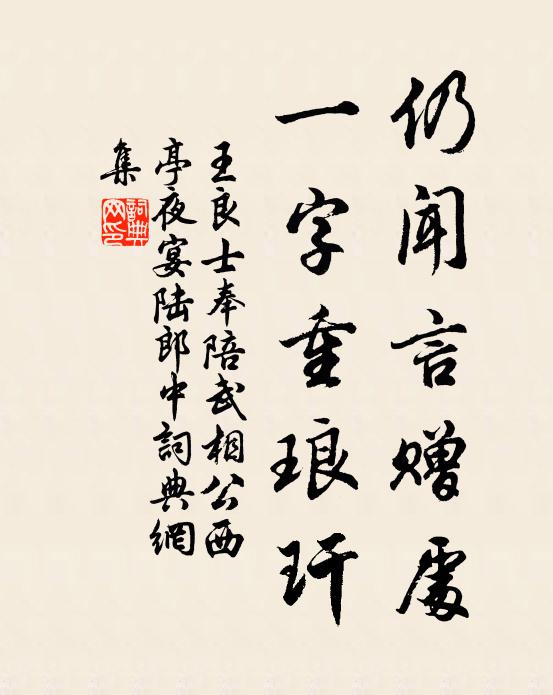 仍闻言赠處
一字重琅玕
王良士奉陪武相公西
亭夜宴陆郎中詞典網
集
詞典網印